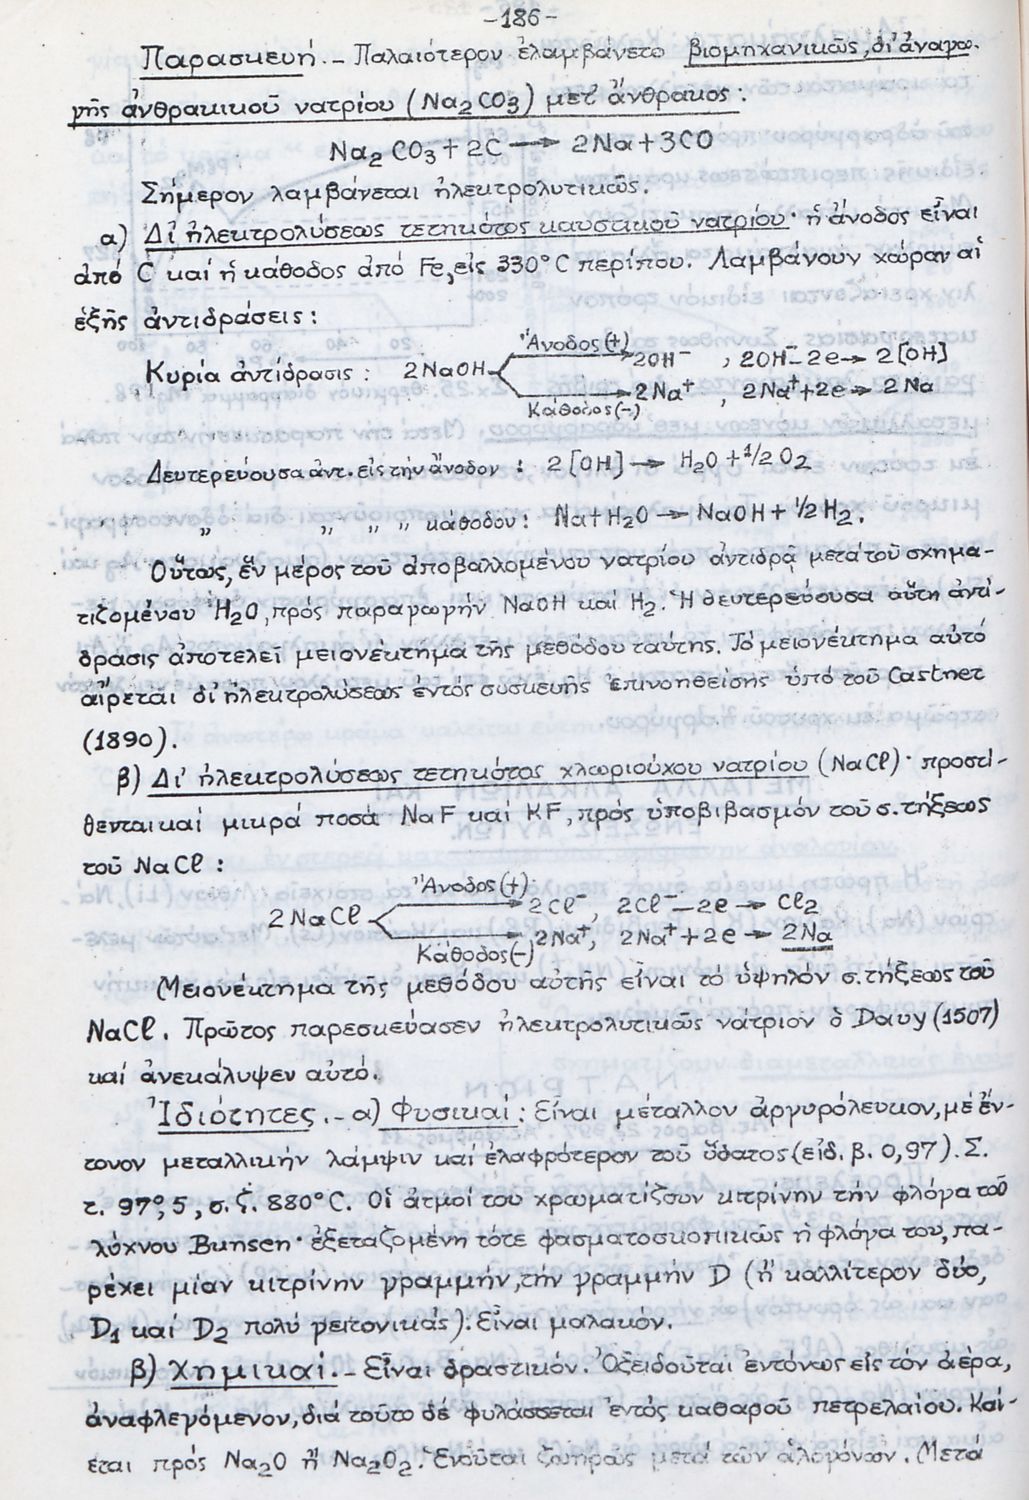 -186-
Παρασκευή.- Παλαιότερον ἐλαμβάνετο βιομηχανικῶς, δι' ἀναγω-
γῆς ἀνθρακικοῦ νατρίου (Na2CO3) μετ' ἄνθρακος:
Na2CO3 + 2C → 2Na + 3CO
Σήμερον λαμβάνεται ἠλεκτρολυτικῶς.
α) Δι' ἠλεκτρολύσεως τετηκότος καυστικοῦ νατρίου· ἡ ἄνοδος εἶναι
ἀπό C καί ἡ κάθοδος ἀπό Fe, εἰς 330°C περίπου. Λαμβάνουν χώραν αἱ
ἑξῆς ἀντιδράσεις:
Κυρία ἀντίδρασις: 2NaOH Ἄνοδος (+) 2OH⁻ , 2OH⁻- 2e → 2[OH]
Κάθοδος (-) 2Na⁺ , 2Na⁺ + 2e → 2Na
Δευτερεύουσα ἀντ. εἰς τήν ἄνοδον : 2[OH] → H2O + 1/2 O2
„ „ „ „ κάθοδον: Na + H2O → NaOH + 1/2 H2.
Οὕτως, ἕν μέρος τοῦ ἀποβαλλομένου νατρίου ἀντιδρᾷ μετά τοῦ σχημα-
τιζομένου H2O, πρός παραγωγήν NaOH καί H2. Ἡ δευτερεύουσα αὕτη ἀντί-
δρασις ἀποτελεῖ μειονέκτημα τῆς μεθόδου ταύτης. Τό μειονέκτημα αὐτό
αἴρεται δι' ἠλεκτρολύσεως ἐντός συσκευῆς ἐπινοηθείσης ὑπό τοῦ Castner
(1890).
β) Δι' ἠλεκτρολύσεως τετηκότος χλωριούχου νατρίου (NaCl)· προστί-
θενται καί μικρά ποσά NaF καί KF, πρός ὑποβιβασμόν τοῦ σ. τήξεως
τοῦ NaCl:
2NaCl Ἄνοδος (+) 2Cl⁻, 2Cl⁻ - 2e → Cl2
Κάθοδος (-) 2Na⁺, 2Na⁺ + 2e → 2Na
Μειονέκτημα τῆς μεθόδου αὐτῆς εἶναι τό ὑψηλόν σ. τήξεως τοῦ
NaCl. Πρῶτος παρεσκεύασεν ἠλεκτρολυτικῶς νάτριον ὁ Davy (1507)
καί ἀνεκάλυψεν αὐτό.
Ἰδιότητες.- α) Φυσικαί: Εἶναι μέταλλον ἀργυρόλευκον, μέ ἔν-
τονον μεταλλικήν λάμψιν καί ἐλαφρότερον τοῦ ὕδατος (εἰδ. β. 0,97). Σ.
τ. 97°,5, σ. ζ. 880°C. Οἱ ἀτμοί του χρωματίζουν κιτρίνην τήν φλόγα τοῦ
λύχνου Bunsen· ἐξεταζομένη τότε φασματοσκοπικῶς ἡ φλόγα του, πα-
ρέχει μίαν κιτρίνην γραμμήν, τήν γραμμήν D (ἤ καλλίτερον δύο,
D1 καί D2 πολύ γειτονικάς). Εἶναι μαλακόν.
β) Χημικαί.- Εἶναι δραστικόν. Ὀξειδοῦται ἐντόνως εἰς τόν ἀέρα,
ἀναφλεγόμενον, διά τοῦτο δέ φυλάσσεται ἐντός καθαροῦ πετρελαίου. Καί-
εται πρός Na2O ἤ Na2O2. Ἑνοῦται ζωηρῶς μετά τῶν ἁλογόνων. Μετά